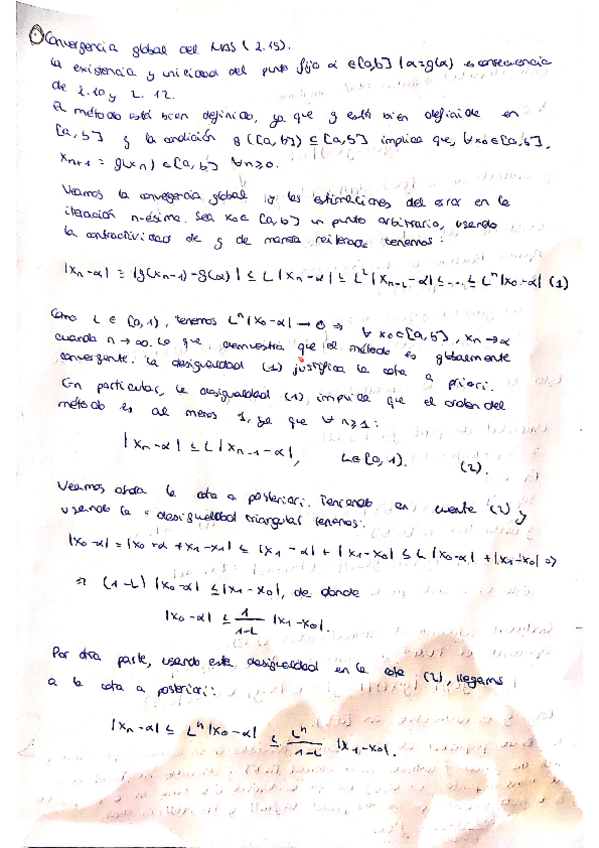 Convergencia global del MAS (2.15).
La existencia y unicidad del punto fijo α ∈ [a,b] / α = g(α) es consecuencia
de 2.10 y 2.12.
El método está bien definido, ya que g está bien definida en
[a,b] y la condición g([a,b]) ⊆ [a,b] implica que, ∀ x₀ ∈ [a,b],
xₙ₊₁ = g(xₙ) ∈ [a,b] ∀n≥0.
Veamos la convergencia global y las estimaciones del error en la
iteración n-ésima. Sea x₀ ∈ [a,b] un punto arbitrario, usando
la contractividad de g de manera reiterada tenemos:
|xₙ-α| = |g(xₙ₋₁)-g(α)| ≤ L |xₙ-α| ≤ L² |xₙ₋₂-α| ≤ ... ≤ Lⁿ |x₀-α| (1)
Como L ∈ [0,1), tenemos Lⁿ |x₀-α| → 0 ⇒ ∀ x₀ ∈ [a,b], xₙ → α
cuando n → ∞. Lo que demuestra que el método es globalmente
convergente. La desigualdad (1) justifica la cota a priori.
En particular, la desigualdad (1), implica que el orden del
método es al menos 1, ya que ∀ n≥1:
|xₙ-α| ≤ L |xₙ₋₁-α|, L∈[0,1). (2).
Veamos ahora la cota a posteriori. Teniendo en cuenta (2) y
usando la desigualdad triangular tenemos:
|x₀-α| = |x₀-α + x₁-x₁| ≤ |x₁-α| + |x₁-x₀| ≤ L |x₀-α| + |x₁-x₀| ⇒
⇒ (1-L) |x₀-α| ≤ |x₁-x₀|, de donde
|x₀-α| ≤ 1/(1-L) |x₁-x₀|.
Por otra parte, usando esta desigualdad en la cota (2), llegamos
a la cota a posteriori:
|xₙ-α| ≤ Lⁿ |x₀-α| ≤ Lⁿ/(1-L) |x₁-x₀|.